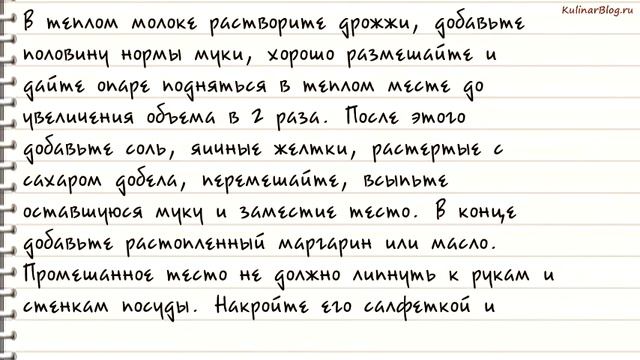 KulinarBlog.ru
В теплом молоке растворите дрожжи, добавьте
половину нормы муки, хорошо размешайте и
дайте опаре подняться в теплом месте до
увеличения объема в 2 раза. После этого
добавьте соль, яичные желтки, растертые с
сахаром добела, перемешайте, всыпьте
оставшуюся муку и заместие тесто. В конце
добавьте растопленный маргарин или масло.
Промешанное тесто не должно липнуть к рукам и
стенкам посуды. Накройте его салфеткой и